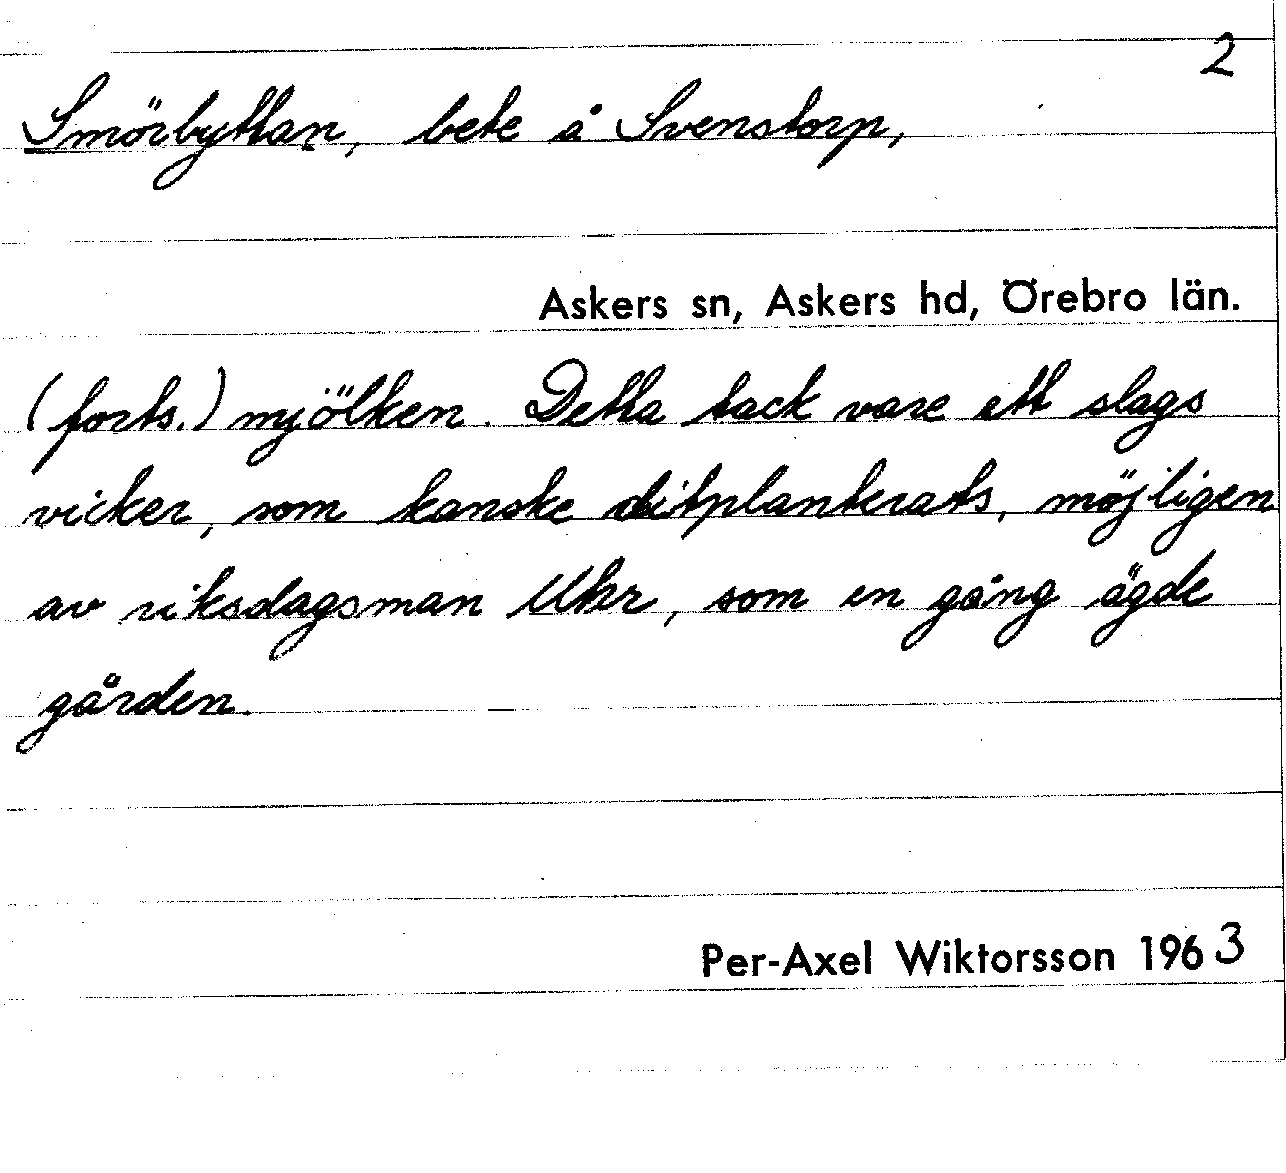 2
Smörbyttan, bete å Svenstorp,
Askers sn, Askers hd, Örebro län.
(forts.) mjölken. Detta tack vare ett slags
vicker, som kanske ditplanterats, möjligen
av riksdagsman Uhr, som en gång ägde
gården.
Per-Axel Wiktorsson 1963